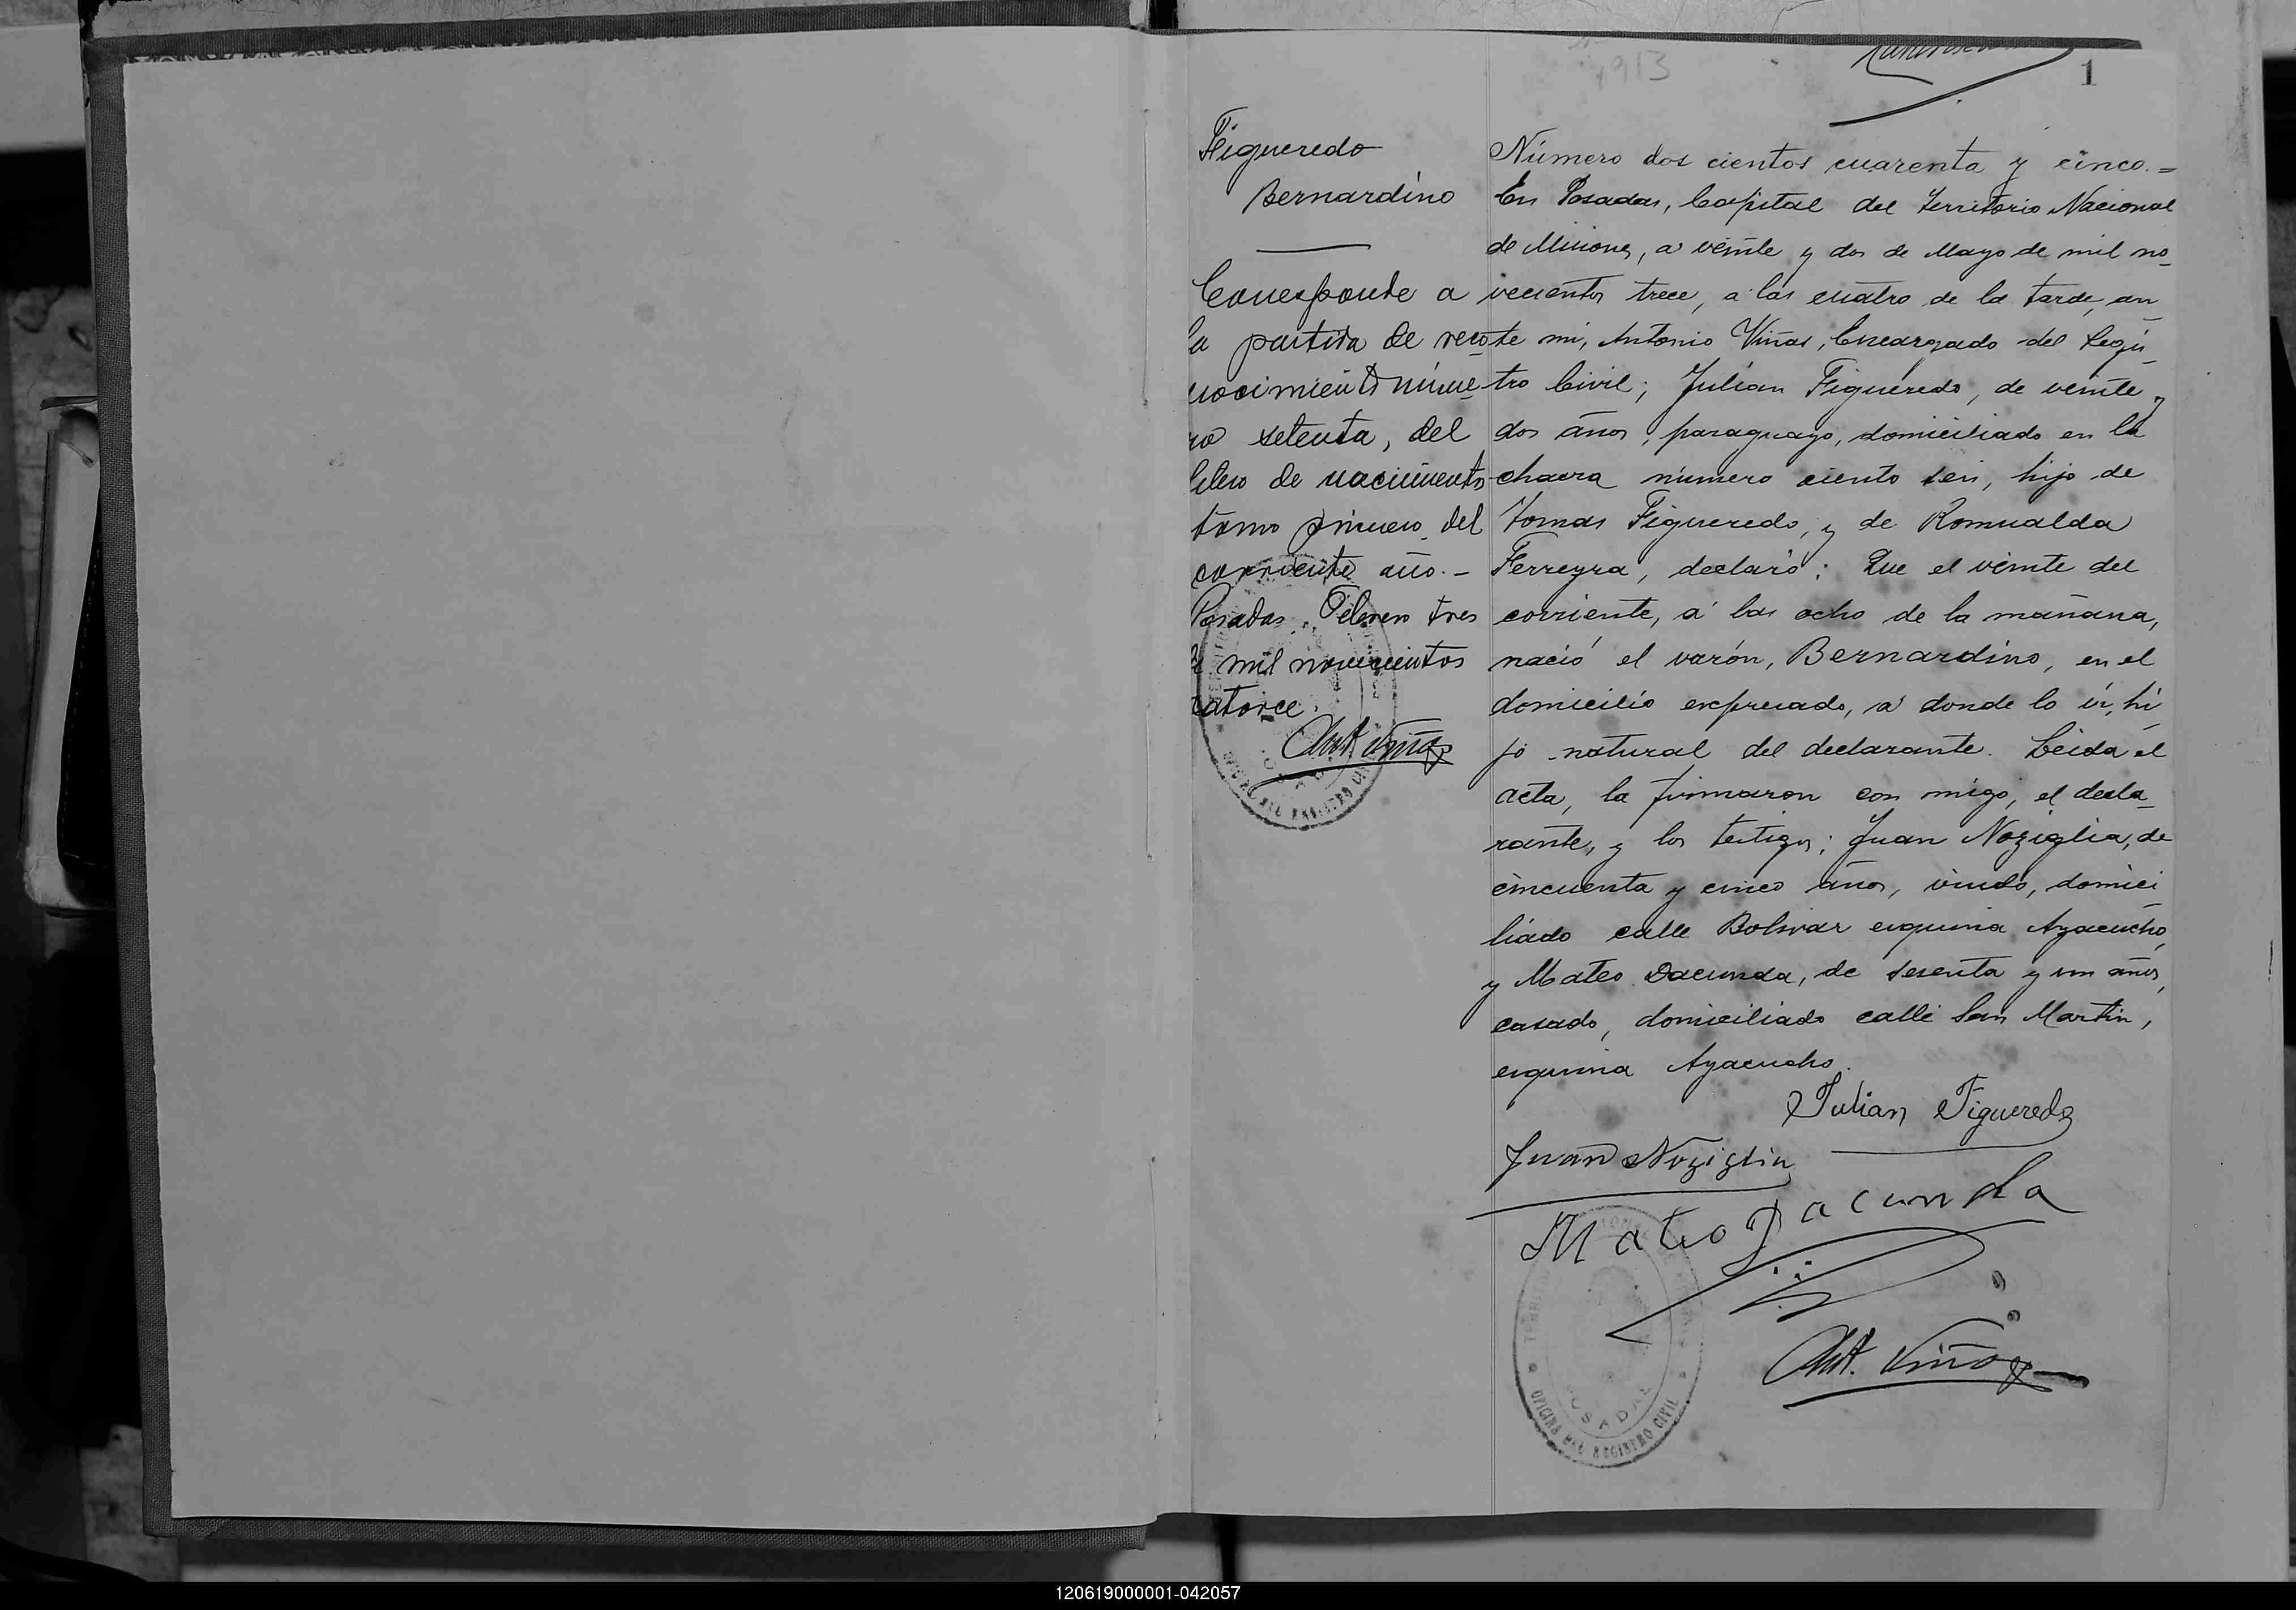 1913
1
Figueredo
Bernardino
Corresponde a
la partida de reco
nocimiento núme
ro setenta, del
libro de nacimiento
tomo primero del
corriente año.-
Posadas, Febrero tres
de mil novecientos
catorce.
Ant. Viñas
Número dos cientos cuarenta y cinco.=
En Posadas, Capital del Territorio Nacional
de Misiones, a veinte y dos de Mayo de mil no_
vecientos trece, a las cuatro de la tarde, an_
te mi, Antonio Viñas, Encargado del Regis_
tro Civil; Julian Figueredo, de veinte y
dos años, paraguayo, domiciliado en la
chacra número ciento seis, hijo de
Tomas Figueredo, y de Romualda
Ferreyra, declaró: Que el veinte del
corriente, á las ocho de la mañana,
nació el varón, Bernardino, en el
domicilio expresado, a donde lo ví, hi_
jo natural del declarante. Leida el
acta, la firmaron con migo, el decla_
rante, y los testigos; Juan Noziglia, de
cincuenta y cinco años, viudo, domici_
liado calle Bolivar esquina Ayacucho,
y Mateo Dacunda, de sesenta y un años,
casado, domiciliado calle San Martin,
esquina Ayacucho.
Julian Figueredo
Juan Noziglia
Mateo Dacunda
Ant. Viñas
POSADAS
OFICINA DEL REGISTRO CIVIL
120619000001-042057